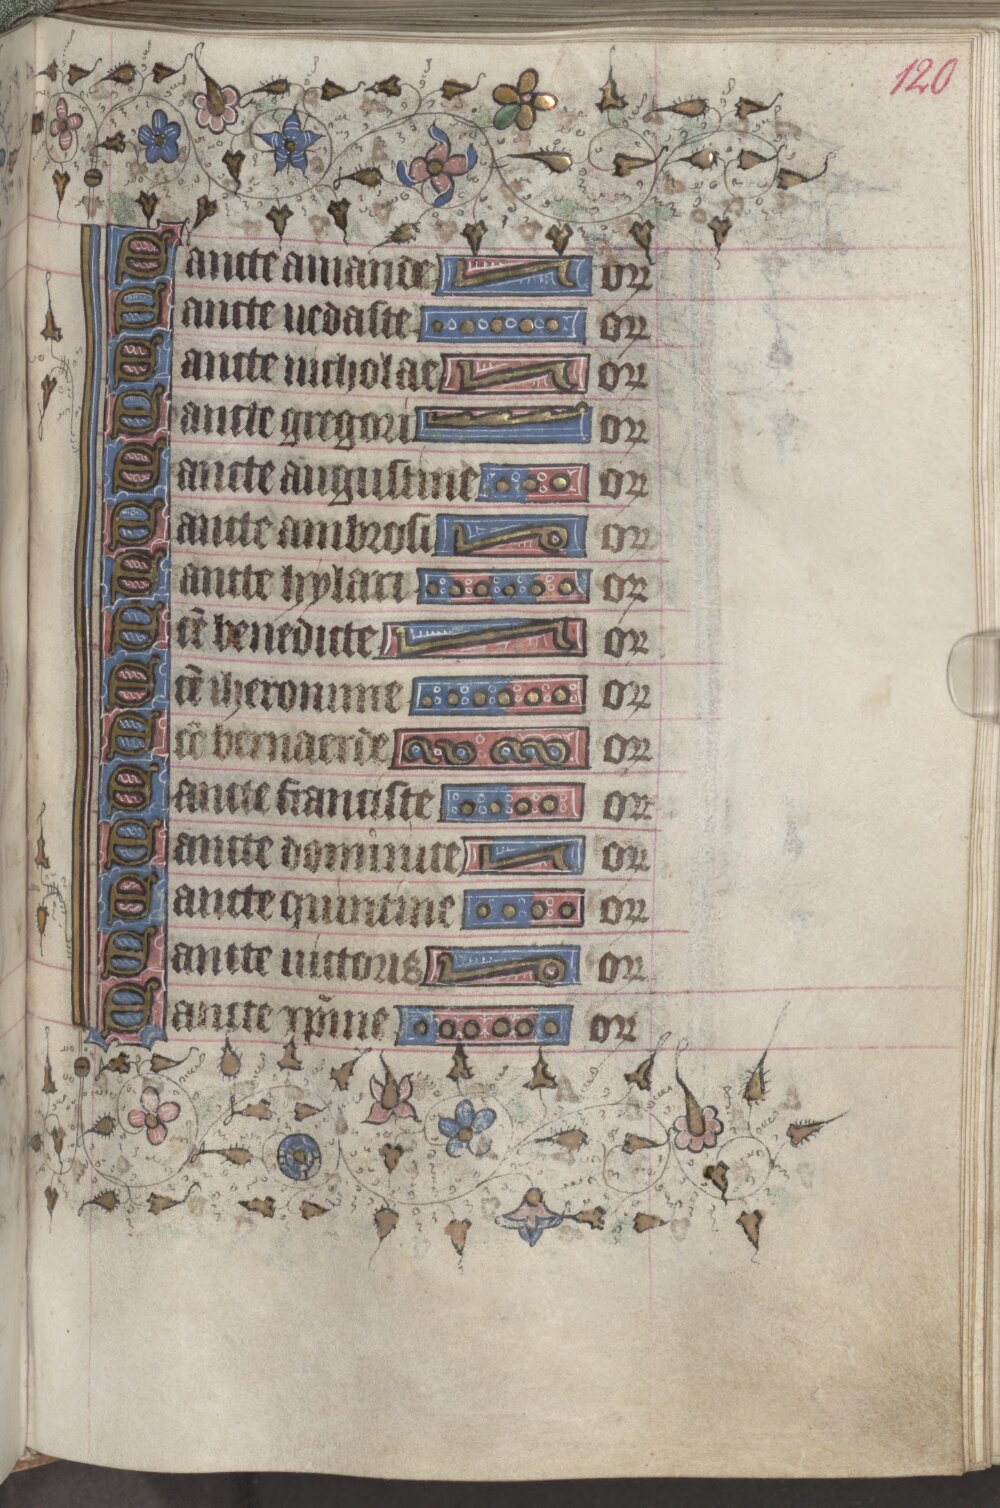 120
Sancte amande or
Sancte vedaste or
Sancte nicholae or
Sancte gregori or
Sancte augustine or
Sancte ambrosi or
Sancte hylari or
Scē benedicte or
Scē iheronime or
Scē bernaerde or
Sancte francisce or
Sancte dominice or
Sancte quintine or
Sancte victoris or
Sancte xp̄ine or